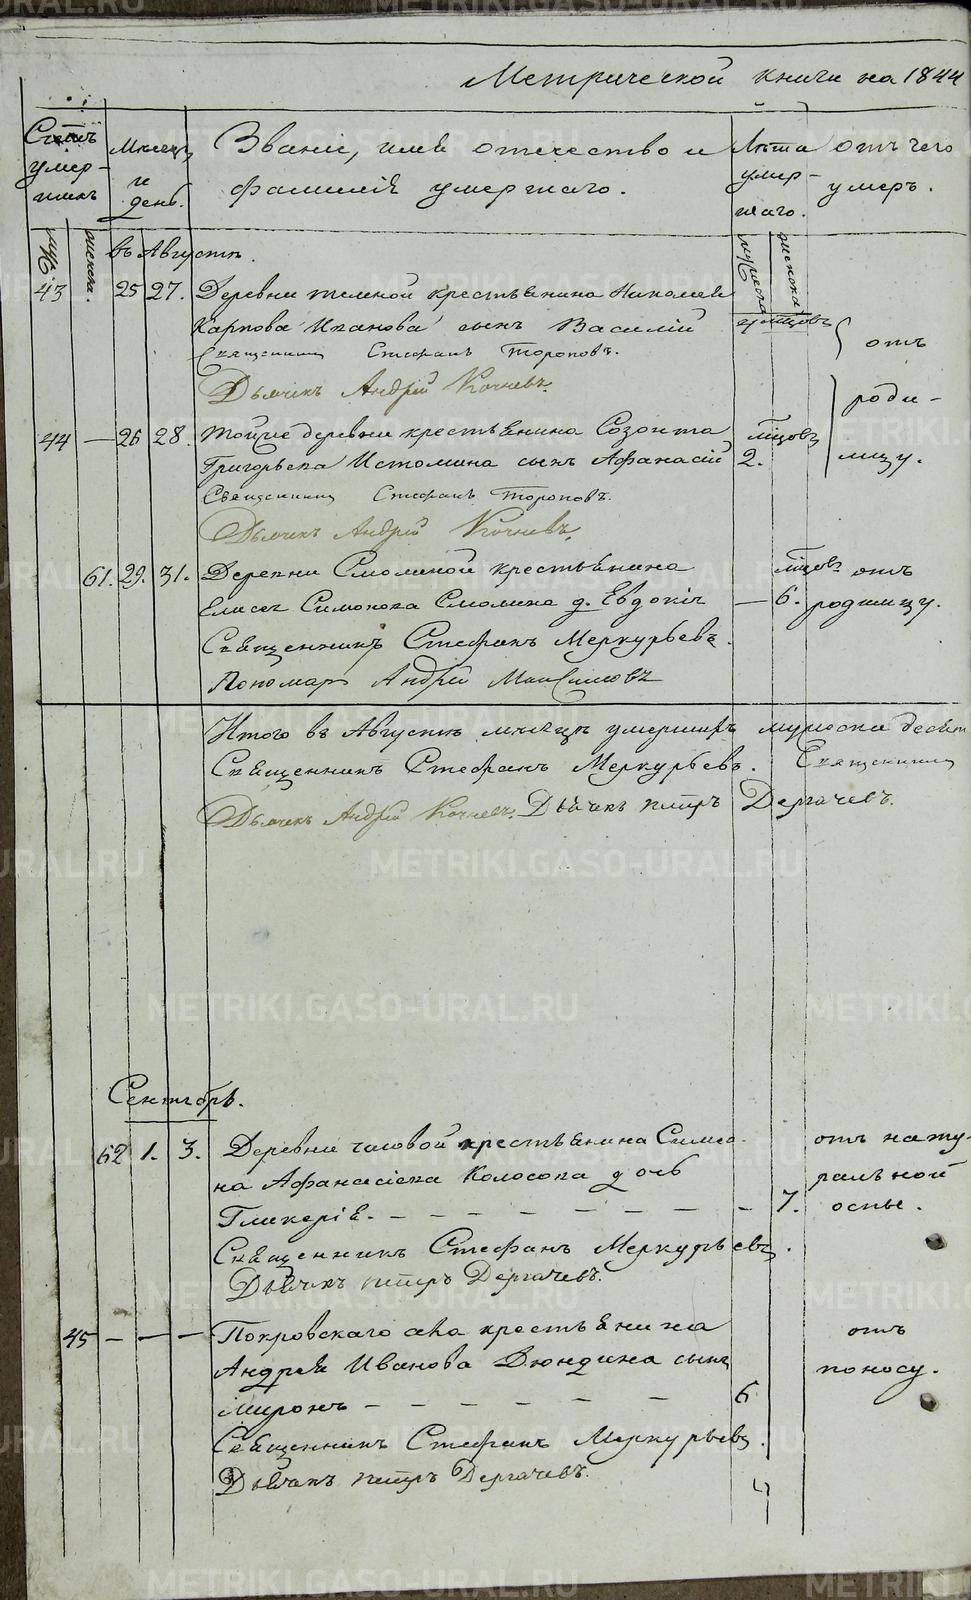 Метрической книги на 1844
Счетъ умер-шихъ
Месецъ и день.
Званіе, имя отечество и фамилія умершаго.
Лѣта умер-шаго.
отъ чего умеръ.
муж. женска.
мужеска женска
въ Августѣ.
43 25 27. Деревни крестьянина Николая
Карпова Иванова сынъ Василій
Священникъ Стефанъ Тороповъ.
Дьячекъ Андрей Кочневъ.
отъ
роди-
мцу.
44 — 26 28. Тойже деревни крестьянина Созонта
Григорьева Истомина сынъ Афанасій 2.
Священникъ Стефанъ Тороповъ.
Дьячекъ Андрей Кочневъ.
61. 29. 31. Деревни Смолиной крестьянина отъ
Елисея Симонова Смолина д. Евдокія — 6. родимцу.
Священникъ Стефанъ Меркурьевъ.
Пономарь Андрей Максимовъ
Итого въ Августѣ месяцѣ умершихъ мужеска десят
Священникъ Стефанъ Меркурьевъ. Священникъ
Дьячекъ Андрей Кочневъ. Дьячекъ Петръ Дергачевъ.
Сентябрь.
62 1. 3. Деревни часовой крестьянина Симео- отъ нату-
на Афанасіева Колосова дочь ральной
Гликерія. — — — — — — — 7. оспы.
Священникъ Стефанъ Меркурьевъ.
Дьячекъ Петръ Дергачевъ.
45 — — — Покровскаго села крестьянина отъ
Андрея Иванова Дюндина сынъ поносу.
Миронъ — — — — — — 6
Священникъ Стефанъ Меркурьевъ.
Дьячекъ Петръ Дергачевъ.
METRIKI.GASO-URAL.RU